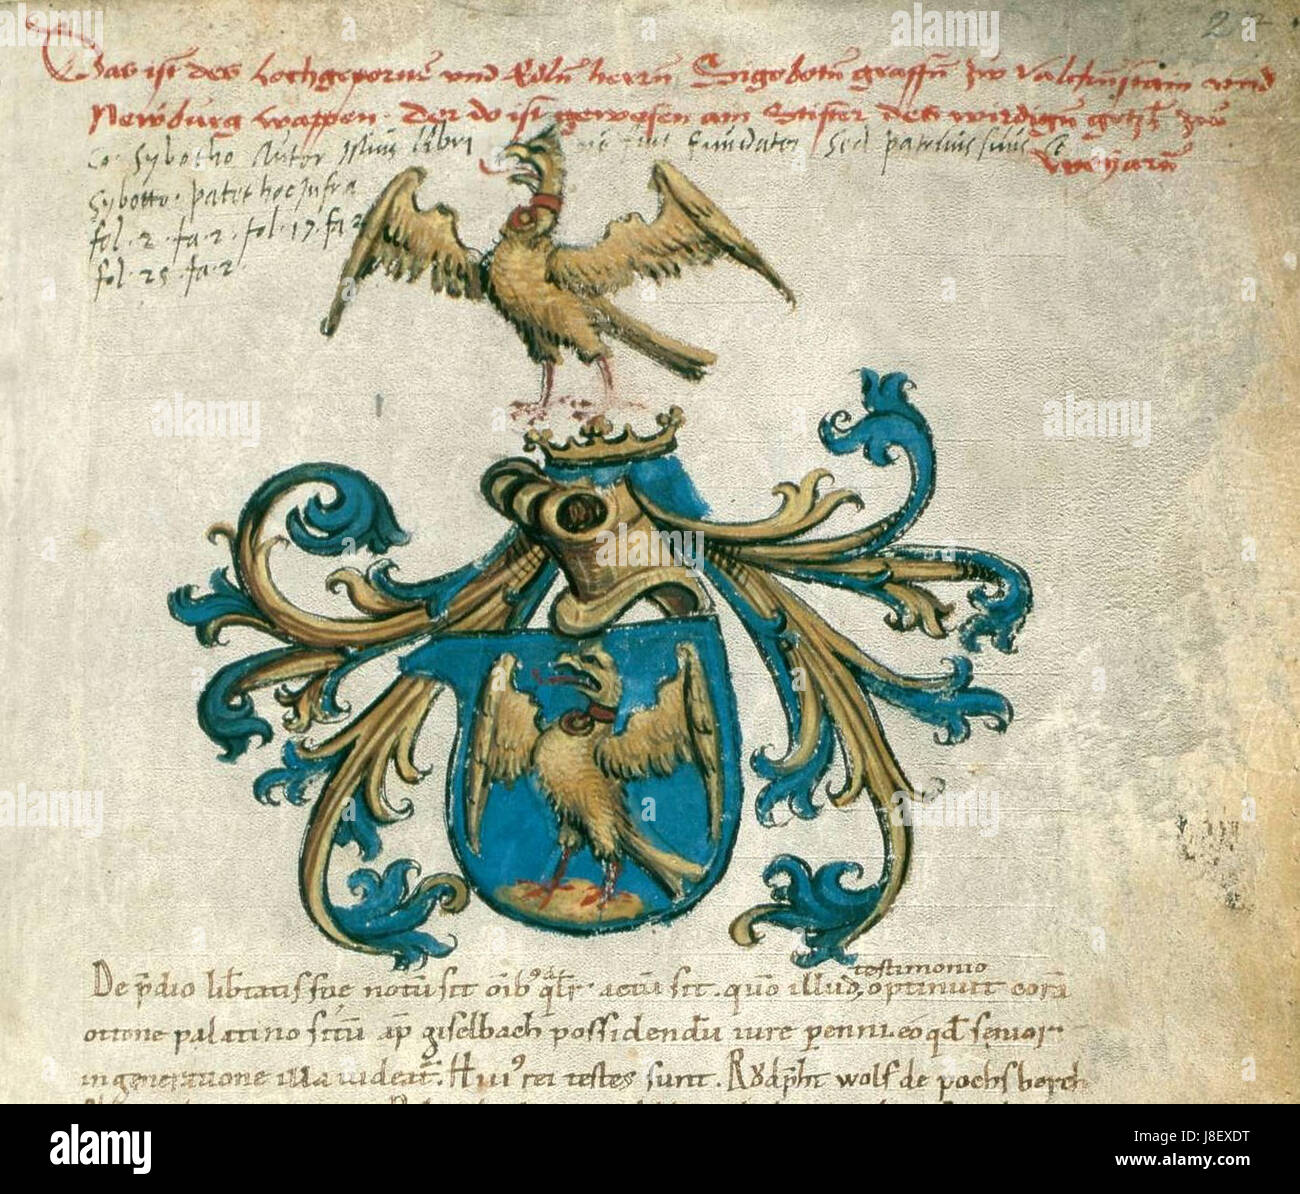 Das ist des hochgeporne und Edln herrn Sigeboten graffn zw valckhnstain und
Newburg wappen. Der do ist gewesen am Stifter des wirdign gotzh zw
Weyarn
Co. Sybotho Autor istius libri fuit fundator sed patruus suus C
Sybotto. patet hoc infra
fol. 2. fa. 2. fol. 17. fa. 2
fol. 25. fa. 2.
De p̄dio lib̄tatis sue notū sit oīb' actū sit. quō illud testimonio optinuit corā
ottone palatino sitū ap̄ giselbach possidendū iure perenni. eo qd senior
in generatione illa videat̄. Hui' rei testes sunt. wolf de pochsberch
alamy
Image ID: J8EXDT
www.alamy.com